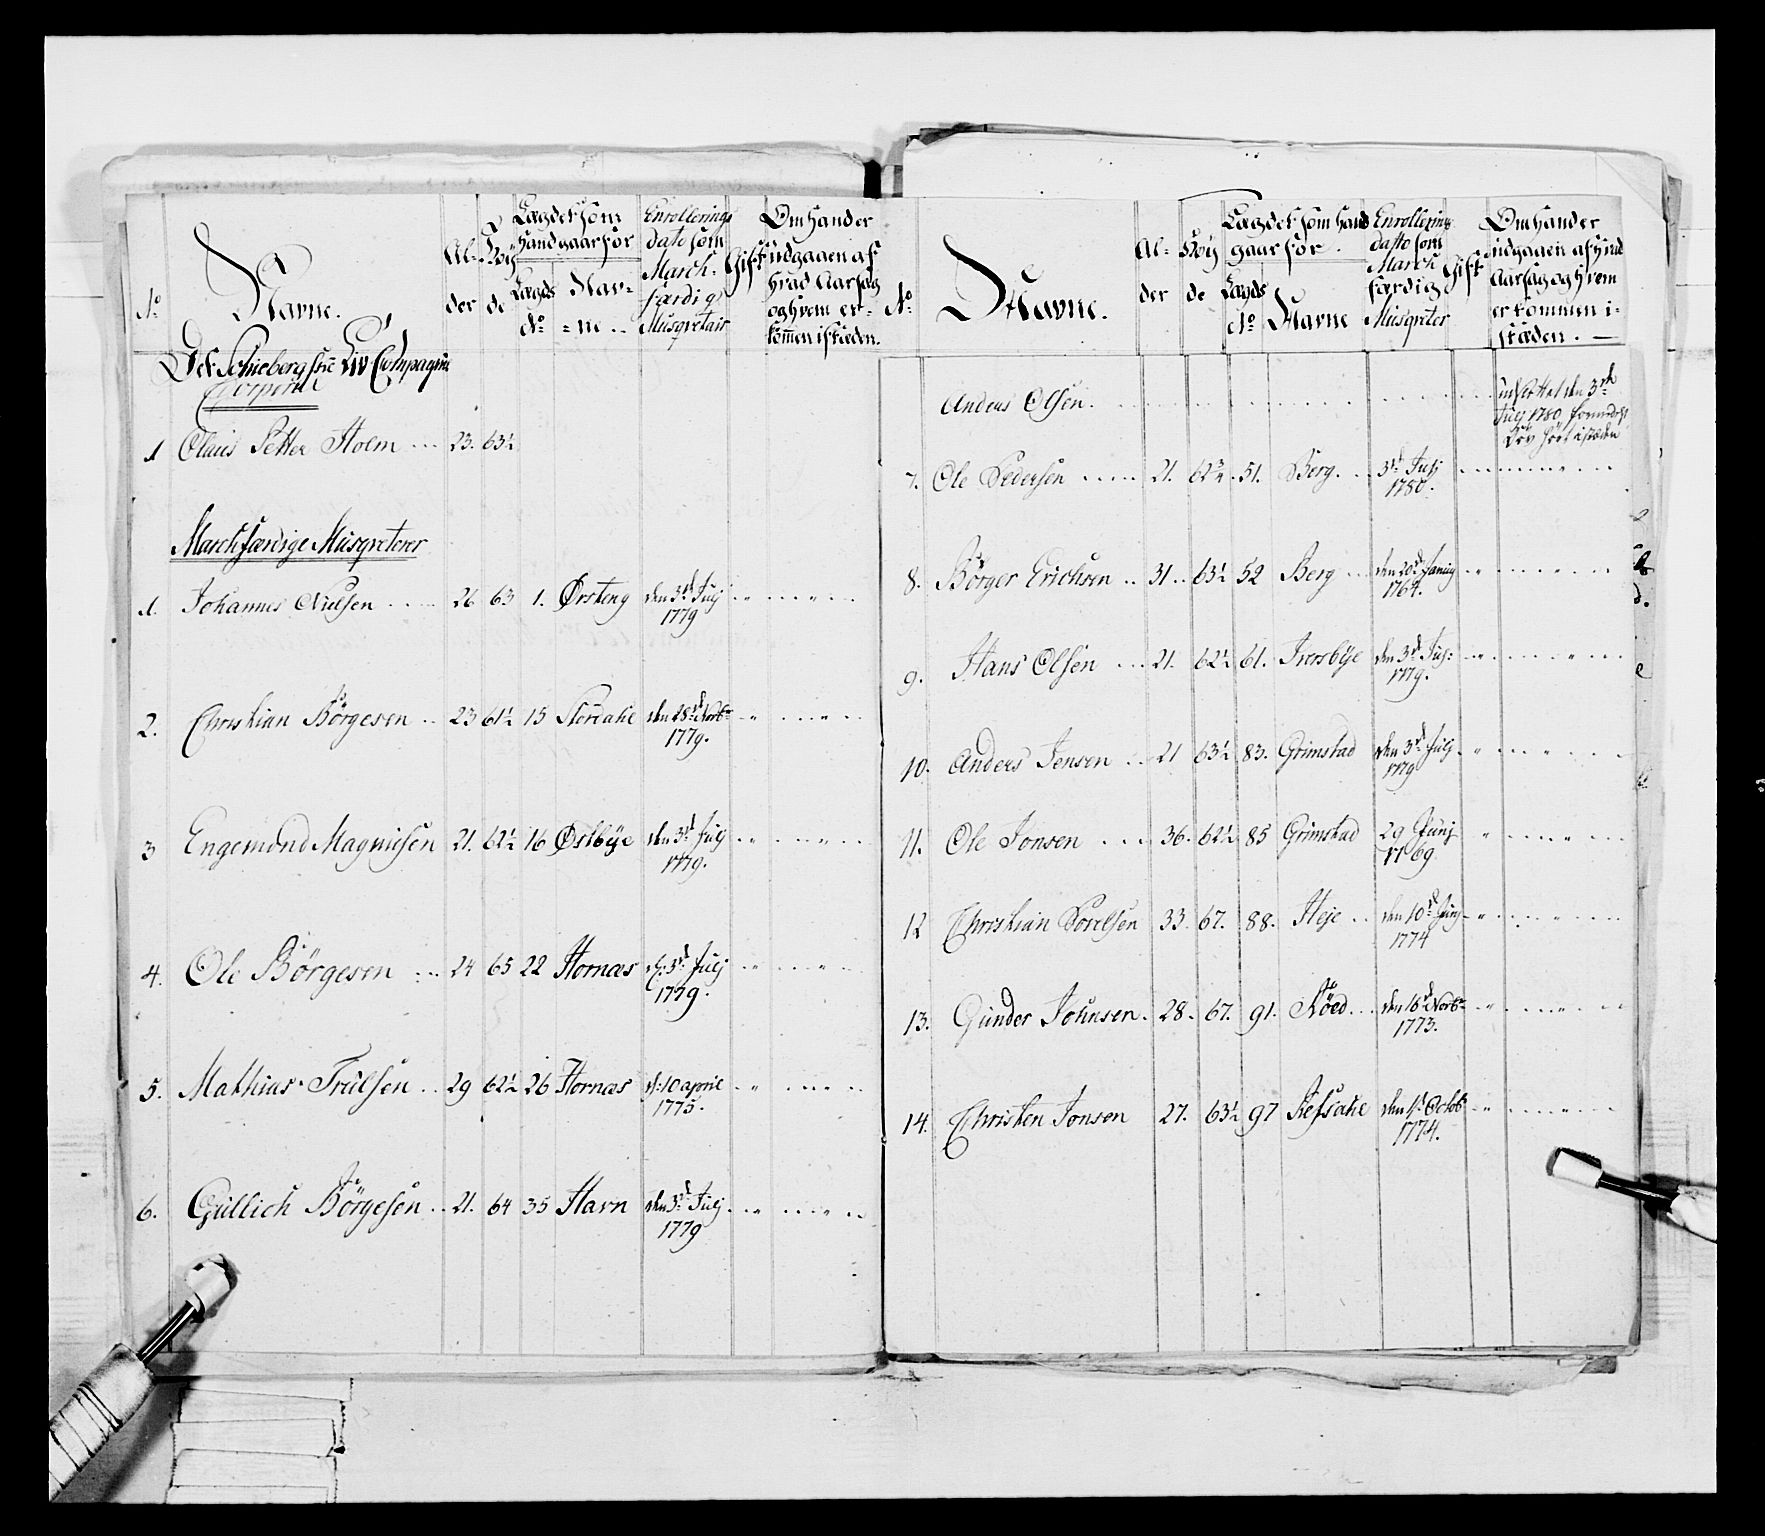 No
Navne.
Al-
der
Höy
de
Lægdet som
hand gaar for
Lægds
No
Nav-
ne
Enrollerings
dato som
March-
færdig
Musqvetair
Gift
Om hander
udgaaen af
hvad Aarsag
og hvem er-
kommen i stæden.
Det Schiebergske Liv Compagnie
Corporal
1 Claus Petter Holm ... 23. 63½
Marchfærdige Musqveterer
1. Johannes Nielsen 26 63 1. Ørsteng den 3de Julj
1779
2. Christian Börgesen .. 23 61½ 15 Stordahl den 28de Novbr
1779.
3 Engemund Magnusen 21. 62½ 16 Østbye den 3de Julj
1779.
4. Ole Börgesen 24 65 22 Hornæs d: 3de Julj
1779.
5. Mathias Trulsen .. 29 62½ 26 Hornæs d: 10 april
1775.
6. Gullich Börgesen .. 21. 64 35 Havn den 3de Julj
1779
No
Navne.
Al-
der
Höy
de
Lægdet som hand
gaar for.
Lægds
No
Navne
Enrollerings
datto som
March
færdig
Musqveter
Gift
Om hander
udgaaen af hvad
Aarsag og hvem
er kommen i-
stæden.
Anders Olsen.
den 3de
Julj 1780
7. Ole Pedersen 21. 62¾ 51. Berg. 3de Julj
1780.
8. Börger Erichsen .. 31 .. 63½ 52 Berg den 20de
1764.
9. Hans Olsen ... 21. 62½ 61. Iversbye den 3de Julj:
1779.
10. Anders Jensen 21 63½ 83. Grimstad den 3de Julj
1779
11. Ole Jonsen 36. 62½ 85 Grimstad 29 Junj
1769
12 Christian Torelsen 33. 67. 88. Heje .. den 10de Junj
1774
13. Gunder Johnsen. 28. 67. 91. Röed den 16de Novbr
1773.
14. Christen Jonsen 27. 63½ 97 Refsahl den 4de Octob
1774.